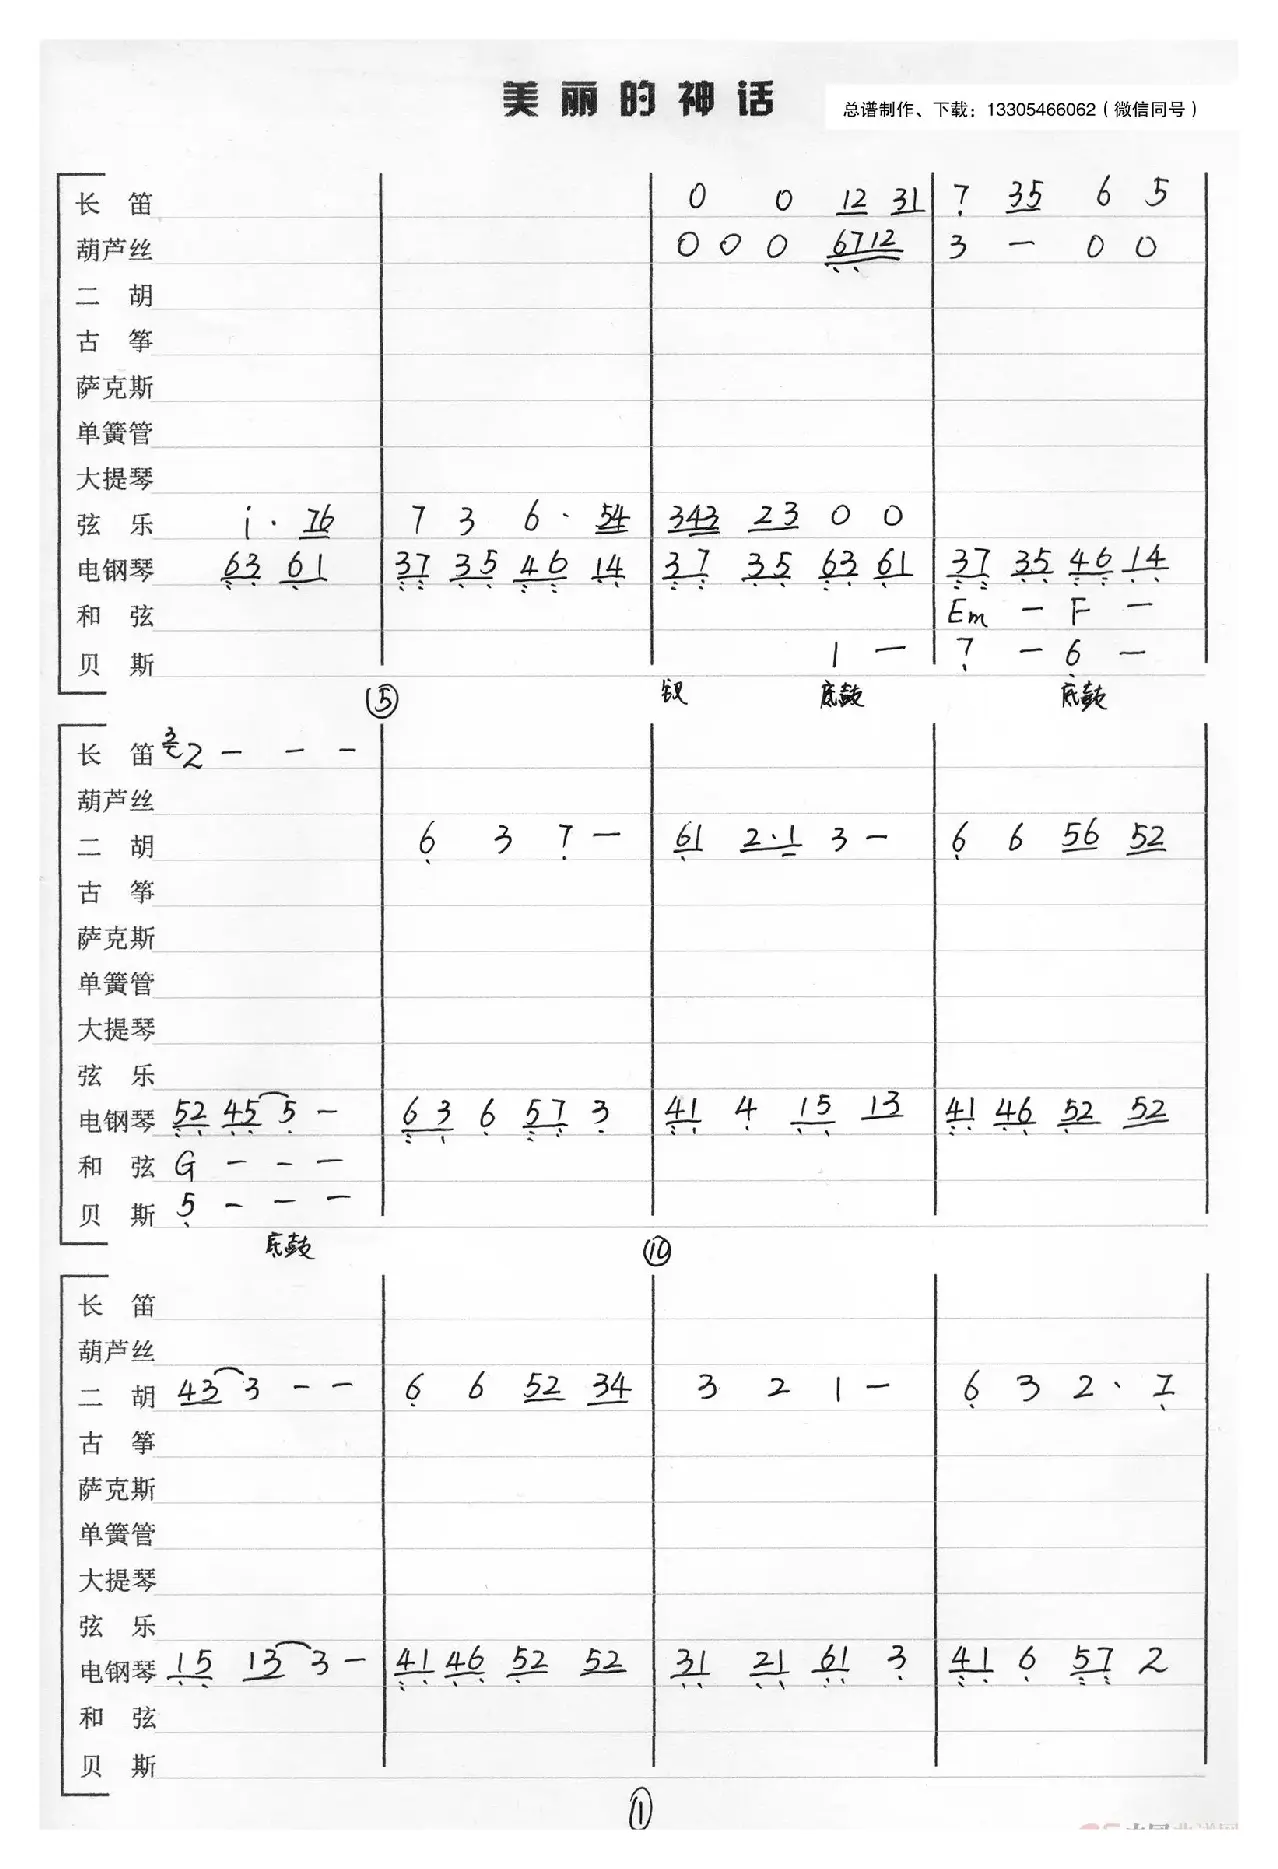 美丽的神话
总谱制作、下载：13305466062（微信同号）
长 笛 0 0 12 31 7 35 6 5
葫芦丝 0 0 0 6712 3 — 0 0
二 胡
古 筝
萨克斯
单簧管
大提琴
弦 乐 i · 76 7 3 6 · 54 343 23 0 0
电钢琴 63 61 37 35 46 14 37 35 63 61 37 35 46 14
和 弦 Em — F —
贝 斯 1 — 7 — 6 —
⑤ 镲 底鼓 底鼓
长 笛 3 2 — — —
葫芦丝
二 胡 6 3 7 — 61 2·1 3 — 6 6 56 52
古 筝
萨克斯
单簧管
大提琴
弦 乐
电钢琴 52 45 5 — 63 6 57 3 41 4 15 13 41 46 52 52
和 弦 G — — —
贝 斯 5 — — —
底鼓 ⑩
长 笛
葫芦丝
二 胡 43 3 — — 6 6 52 34 3 2 1 — 6 3 2 · 7
古 筝
萨克斯
单簧管
大提琴
弦 乐
电钢琴 15 13 3 — 41 46 52 52 31 21 61 3 41 6 57 2
和 弦
贝 斯
①